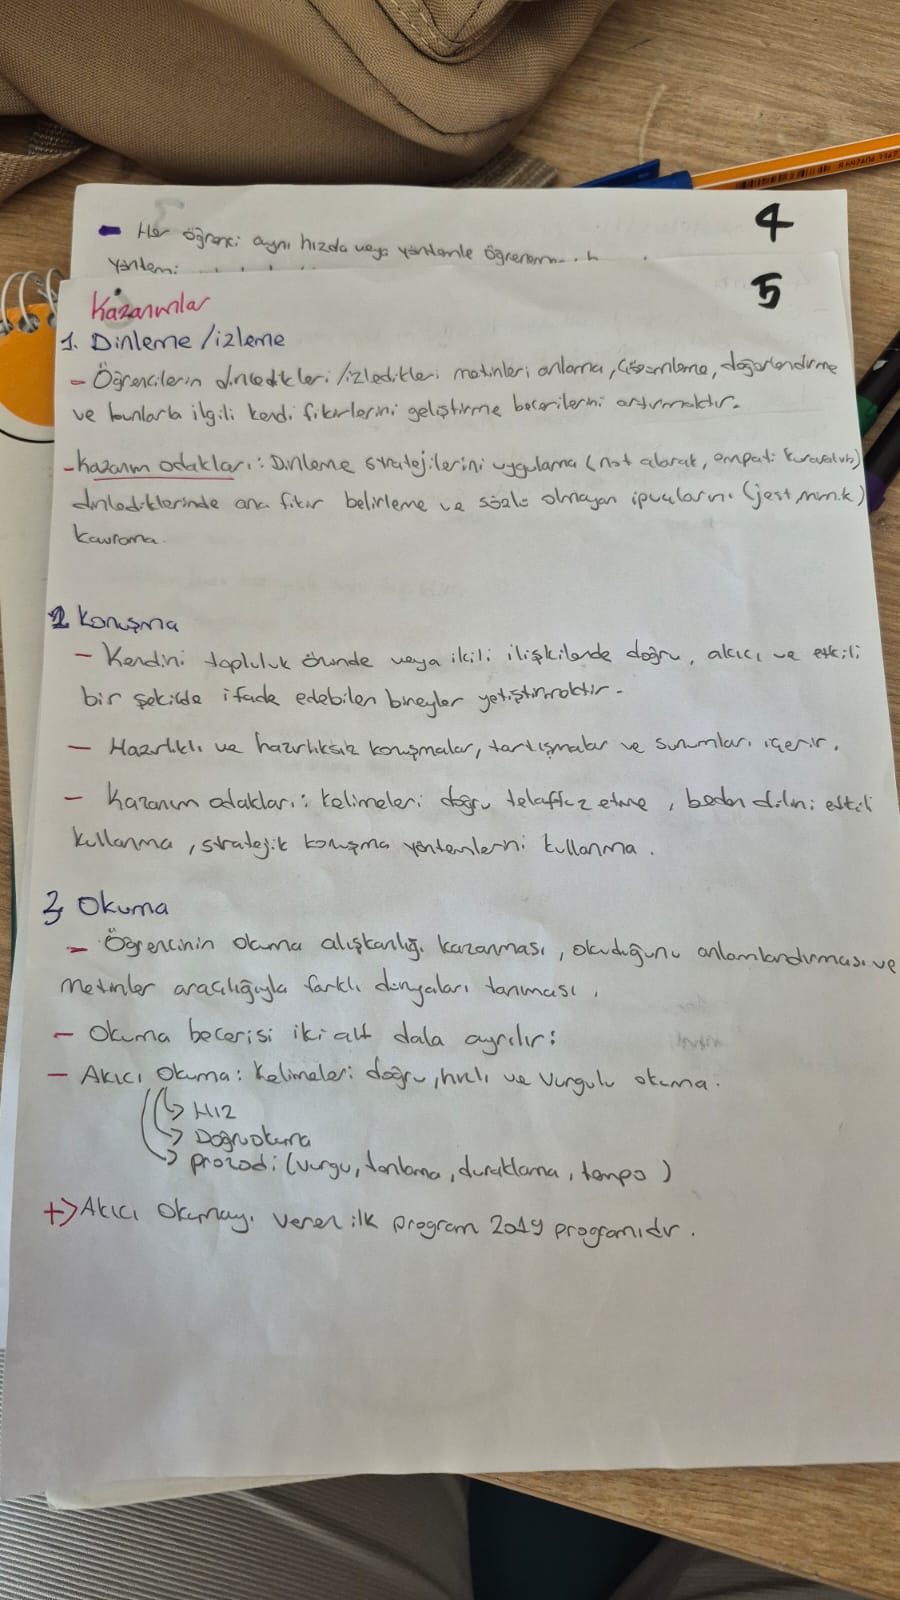 4
- Her öğrenci aynı hızda veya yöntemle
yöntemi
5
Kazanımlar
1. Dinleme /izleme
- Öğrencilerin dinledikleri /izledikleri metinleri anlama, çözümleme, değerlendirme
ve bunlarla ilgili kendi fikirlerini geliştirme becerilerini artırmaktır.
- Kazanım odakları: Dinleme stratejilerini uygulama (not alarak, empati kurarak)
dinlediklerinde ana fikir belirleme ve sözlü olmayan ipuçlarını (jest, mimik)
kavrama.
2 Konuşma
- Kendini topluluk önünde veya ikili ilişkilerde doğru, akıcı ve etkili
bir şekilde ifade edebilen bireyler yetiştirmektir.
- Hazırlıklı ve hazırlıksız konuşmalar, tartışmalar ve sunumları içerir.
- Kazanım odakları: Kelimeleri doğru telaffuz etme, beden dilini etkili
kullanma, stratejik konuşma yöntemlerini kullanma.
3 Okuma
- Öğrencinin okuma alışkanlığı kazanması, okuduğunu anlamlandırması ve
metinler aracılığıyla farklı dünyaları tanıması.
- Okuma becerisi iki alt dala ayrılır:
- Akıcı Okuma: Kelimeleri doğru, hızlı ve vurgulu okuma.
→ Hız
→ Doğru okuma
→ prozodi (vurgu, tonlama, duraklama, tempo)
+> Akıcı Okumayı veren ilk program 2019 programıdır.